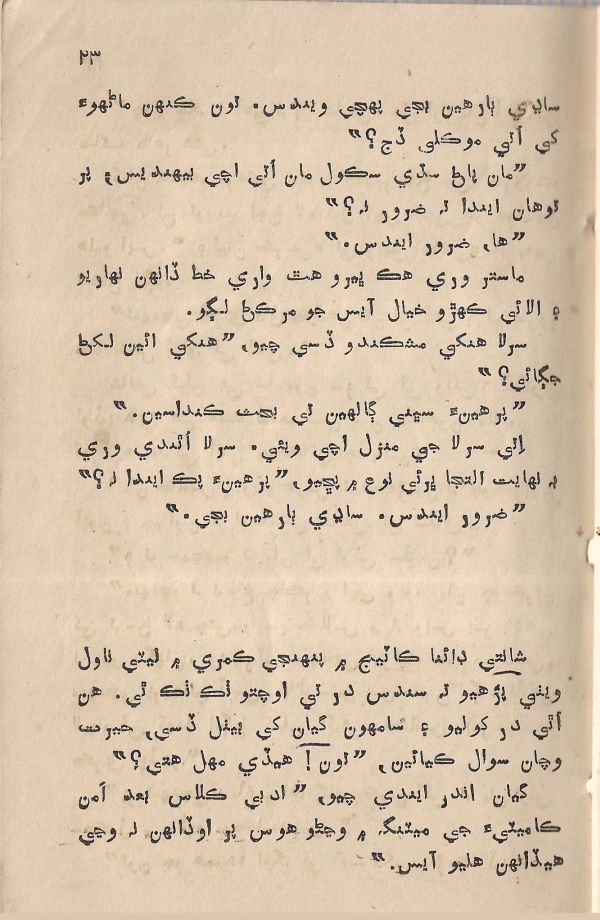 ٢٣
ساڍي ٻارهين بجي پهچي ويندس. تون ڪنهن ماڻهوءَ
کي اُتي موڪلي ڏج؟”
”مان پاڻ سڌي سڪول مان اُتي اچي بيهنديس؛ پر
توهان ايندا ته ضرور نه؟”
”ها، ضرور ايندس.”
ماستر وري هڪ ڀيرو هٿ واري خط ڏانهن نهاريو
۽ الائي ڪهڙو خيال آيس جو مرڪڻ لڳو.
سرلا هنکي مشڪندو ڏسي چيو، ”هنکي ائين لکڻ
جڳائي؟”
”پرهينءَ سڀني ڳالهين تي بحث ڪنداسين.”
اِتي سرلا جي منزل اچي ويئي. سرلا لهندي وري
به نهايت التجا ڀرئي نوع ۾ پڇيو، ”پرهينءَ پڪ ايندا نه؟”
”ضرور ايندس. ساڍي ٻارهين بجي.”
شالتي ڊائنا ڪاٽيج ۾ پنهنجي ڪمري ۾ ليٽي ناول
ويٺي پڙهيو ته سندس در تي اوچتو ٺڪ ٺڪ ٿي. هن
اُٿي در کوليو ۽ سامهون گيان کي بيٺل ڏسي، حيرت
وچان سوال ڪيائين، ”تون! هيڏي مهل هتي؟”
گيان اندر ايندي چيو، ”ادبي ڪلاس بعد اَمن
ڪاميٽيءَ جي ميٽنگ ۾ وڃڻو هوس پر اوڏانهن نه وڃي
هيڏانهن هليو آيس.”